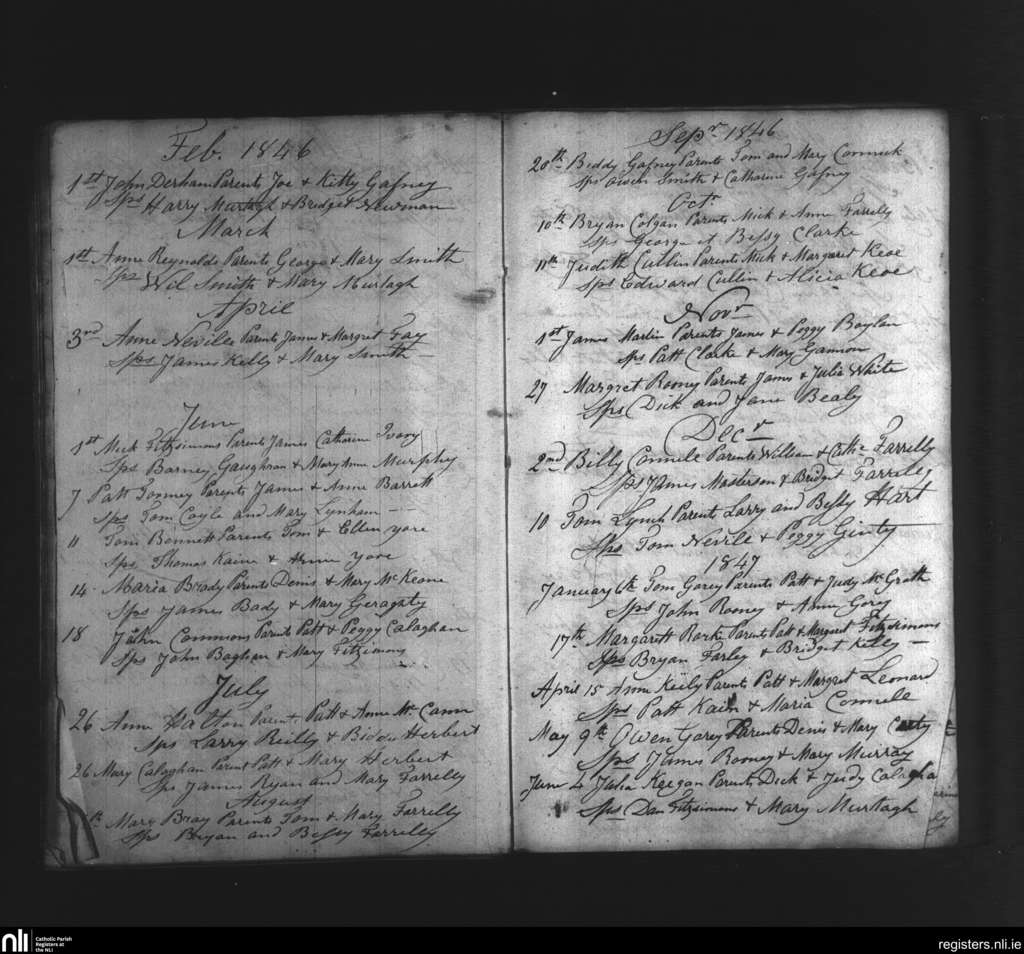 Feb. 1846
1st John Derham Parents Joe & Kitty Gafney
Sps Harry Murtagh & Bridget Newman
March
1st Anne Reynolds Parents George & Mary Smith
Sps Wil Smith & Mary Murtagh
April
3rd Anne Neviles Parents James & Margret Fay
Sps James Kelly & Mary Smith
June
1st Mick Fitzsimons Parents James Catharine Ivory
Sps Barney Gaughran & Mary Anne Murphy
7 Patt Tormey Parents James & Anne Barrett
Sps Tom Coyle and Mary Lynham
11 Tom Bennett Parents Tom & Ellen yore
Sps Thomas Kaine & Anne yore
14 Maria Brady Parents Denis & Mary McKeone
Sps James Bady & Mary Geragaty
18 John Commons Parents Patt & Peggy Calaghan
Sps John Baghan & Mary Fitzimons
July
26 Anne Halton Parents Patt & Anne McCann
Sps Larry Reilly & Biddy Herbert
26 Mary Calaghan Parent Patt & Mary Herbert
Sps James Ryan and Mary Farrelly
August
th Mary Bray Parents Tom & Mary Farrelly
Sps Bryan and Bessy Farreley
Sepr 1846
20th Biddy Gafney Parents Tom and Mary Cormick
Sps Owen Smith & Catharine Gafney
Octr
10th Bryan Colgan Parents Mick & Anne Farrelly
Sps George et Bessy Clarke
11th Judith Cullin Parents Mick & Margaret Keoe
Sps Edward Cullin & Alicia Keoe
Novr
1st James Martin Parents James & Peggy Boylan
Sps Patt Clarke & Mary Gannon
27 Margret Rooney Parents James & Julia White
Sps Dick and Jane Bealy
Decr
2nd Billy Connele Parents William & Cathe Farrelly
Sps James Masterson & Bridget Farreley
10 Tom Lynch Parents Larry and Bessy Hart
Sps Tom Nevile & Peggy Ginty
1847
January 6th Tom Gorey Parents Patt & Judy McGrath
Sps John Rooney & Anne Gorey
17th Margarett Rorke Parents Patt & Margret Fitzsimons
Sps Bryan Farley & Bridget Kelly
April 15 Anne Keily Parents Patt & Margret Leonard
Sps Patt Kain & Maria Connell
May 9th Owen Gorey Parents Denis & Mary
Sps James Rooney & Mary Murray
June 4 Julia Keegan Parents Dick & Judy Calagha
Sps Dan Fitzsimons & Mary Murtagh
nli
Catholic Parish
Registers at
the NLI
registers.nli.ie